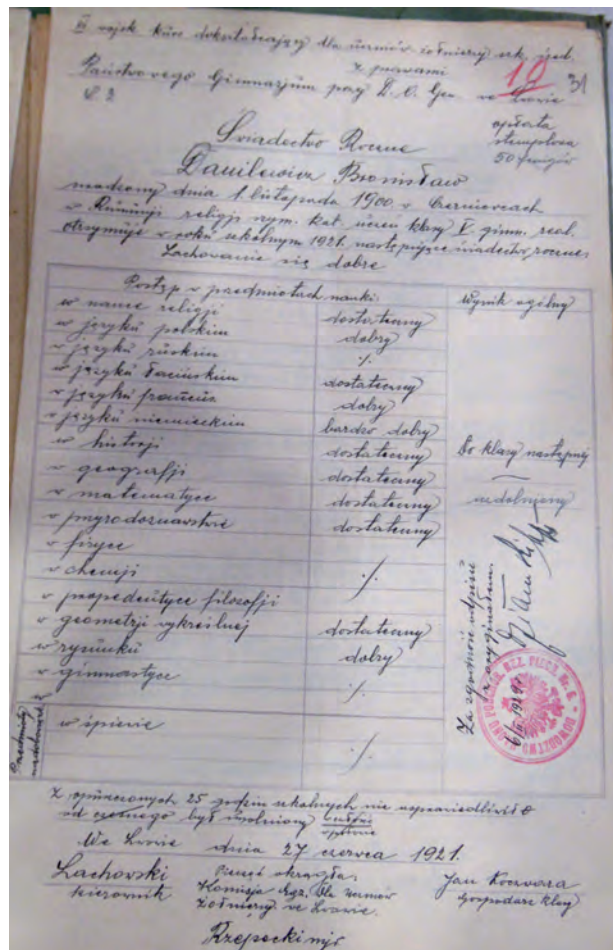 III wojsk. kurs dokształcający dla uczniów żołnierzy szk. śred.
z prawami
Państwowego Gimnazjum przy D. O. Gen. we Lwowie
L. 2
10
31
opłata
stemplowa
50 fenigów
Świadectwo Roczne
Danilewicz Bronisław
urodzony dnia 1. listopada 1900 w Czerniowcach
w Rumunji religji rzym. kat. uczeń klasy V. gimn. real.
otrzymuje w roku szkolnym 1921. następujące świadectwo roczne:
Zachowanie się dobre
Postęp w przedmiotach nauki: Wynik ogólny
w nauce religji dostateczny
w języku polskim dobry
w języku ruskim ·/·
w języku łacińskim dostateczny
w języku francus. dobry
w języku niemieckim bardzo dobry
w historji dostateczny Do klasy następnej
w geografji dostateczny
w matematyce dostateczny uzdolniony
w przyrodoznawstwie dostateczny
w fizyce
w chemji ·/·
w propedeutyce filozofji
w geometrji wykreślnej dostateczny
w rysunku dobry
w gimnastyce ·/·
Przedmioty
nadobowiązk.
w śpiewie ·/·
Za zgodność odpisu
z oryginałem.
DOWÓDZTWO
6/II 1929
Z opuszczonych 25 godzin szkolnych nie usprawiedliwił 0
od czesnego był uwolniony
We Lwowie dnia 27 czerwca 1921.
Lachowski
kierownik
Pieczęć okrągła:
Komisja Egz. dla uczniów
żołnierzy we Lwowie.
Jan Koczwara
gospodarz klasy
Rzepecki mjr